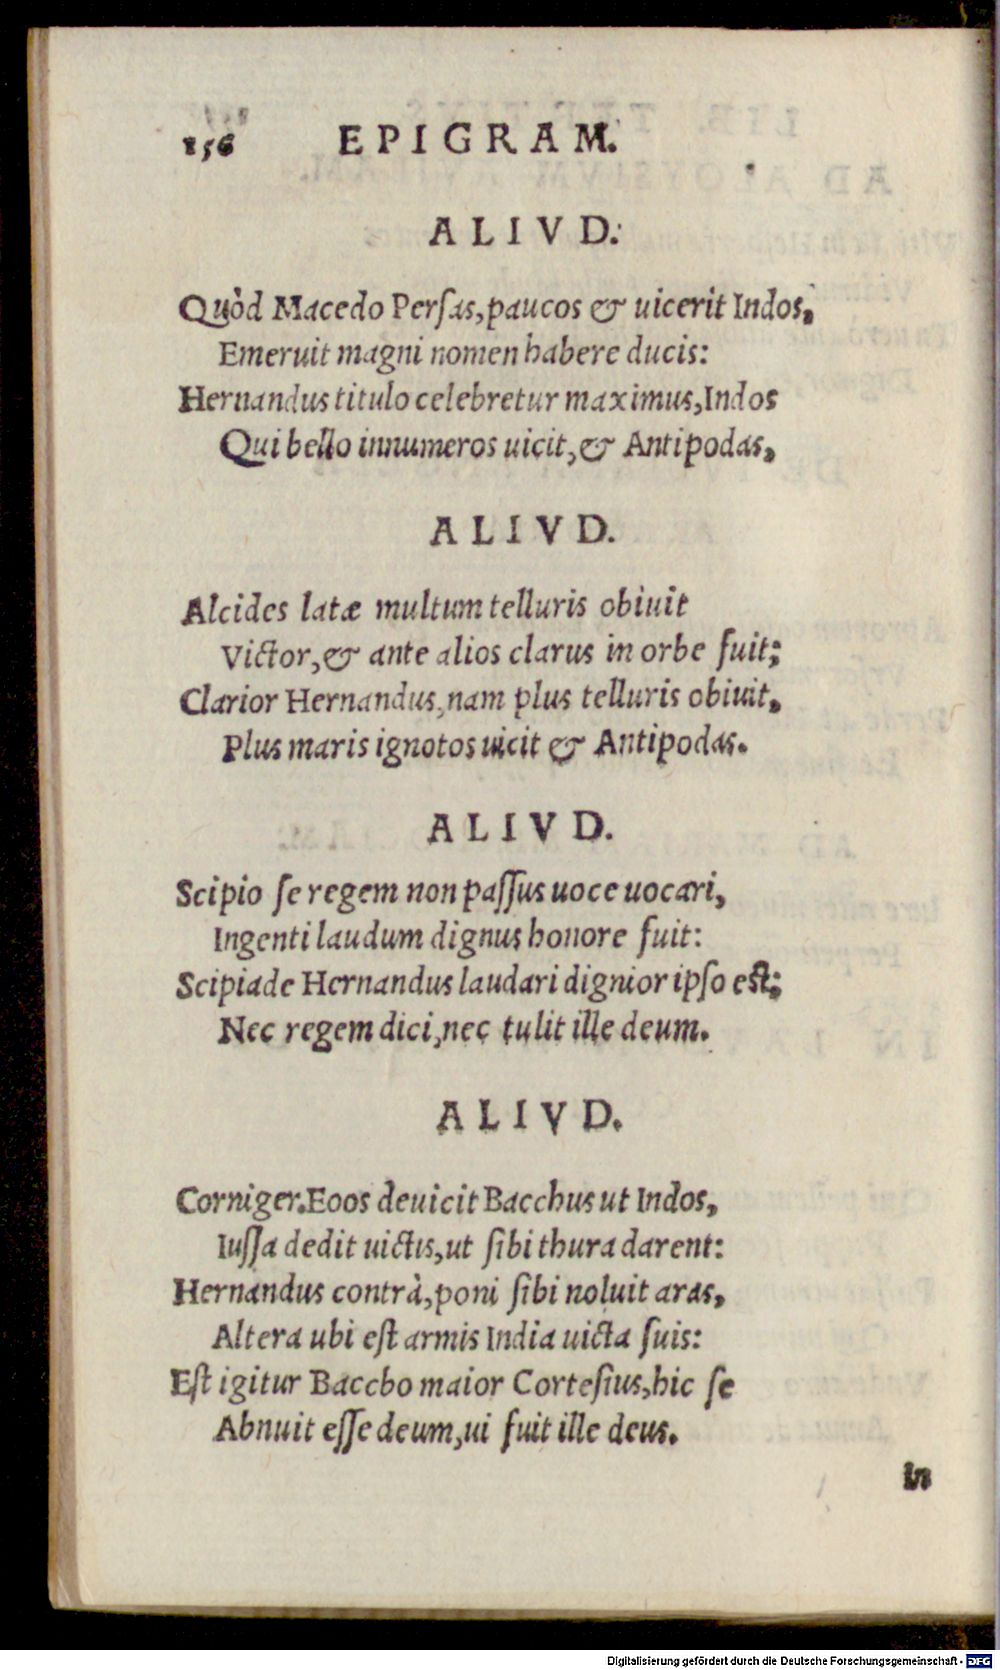 156 EPIGRAM.
ALIVD.
Quòd Macedo Persas, paucos & uicerit Indos,
Emeruit magni nomen habere ducis:
Hernandus titulo celebretur maximus, Indos
Qui bello innumeros uicit, & Antipodas,
ALIVD.
Alcides latæ multum telluris obiuit
Victor, & ante alios clarus in orbe fuit;
Clarior Hernandus, nam plus telluris obiuit,
Plus maris ignotos uicit & Antipodas.
ALIVD.
Scipio se regem non passus uoce uocari,
Ingenti laudum dignus honore fuit:
Scipiade Hernandus laudari dignior ipso est;
Nec regem dici, nec tulit ille deum.
ALIVD.
Corniger. Eoos deuicit Bacchus ut Indos,
Iussa dedit uictis, ut sibi thura darent:
Hernandus contrà, poni sibi noluit aras,
Altera ubi est armis India uicta suis:
Est igitur Baccho maior Cortesius, hic se
Abnuit esse deum, ui fuit ille deus.
in
Digitalisierung gefördert durch die Deutsche Forschungsgemeinschaft - DFG